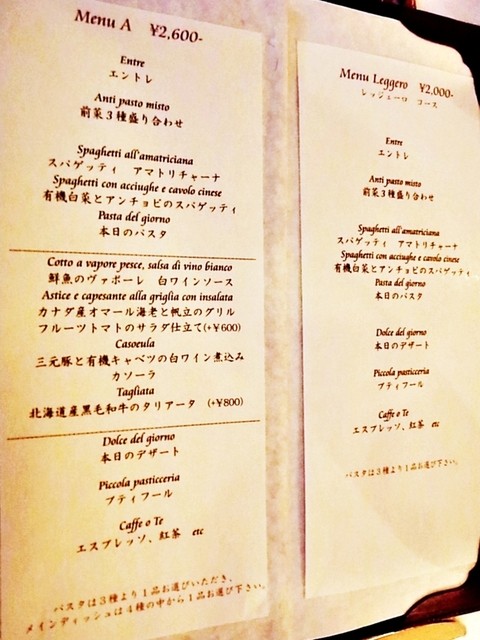 Menu A ¥2,600-
Entre
エントレ
Anti pasto misto
前菜3種盛り合わせ
Spaghetti all'amatriciana
スパゲッティ アマトリチャーナ
Spaghetti con acciughe e cavolo cinese
有機白菜とアンチョビのスパゲッティ
Pasta del giorno
本日のパスタ
Cotto a vapore pesce, salsa di vino bianco
鮮魚のヴァポーレ 白ワインソース
Astice e capesante alla griglia con insalata
カナダ産オマール海老と帆立のグリル
フルーツトマトのサラダ仕立て(+¥600)
Casoeula
三元豚と有機キャベツの白ワイン煮込み
カソーラ
Tagliata
北海道産黒毛和牛のタリアータ (+¥800)
Dolce del giorno
本日のデザート
Piccola pasticceria
プティフール
Caffe o Te
エスプレッソ、紅茶 etc
パスタは3種より1品お選びいただき、
メインディッシュは4種の中から1品お選び下さい。
Menu Leggero ¥2,000-
レッジェーロ コース
Entre
エントレ
Anti pasto misto
前菜3種盛り合わせ
Spaghetti all'amatriciana
スパゲッティ アマトリチャーナ
Spaghetti con acciughe e cavolo cinese
有機白菜とアンチョビのスパゲッティ
Pasta del giorno
本日のパスタ
Dolce del giorno
本日のデザート
Piccola pasticceria
プティフール
Caffe o Te
エスプレッソ、紅茶 etc
パスタは3種より1品お選び下さい。